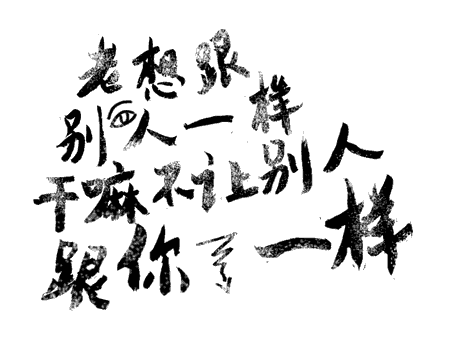 老想跟
别人一样
干嘛不让别人
跟你一样